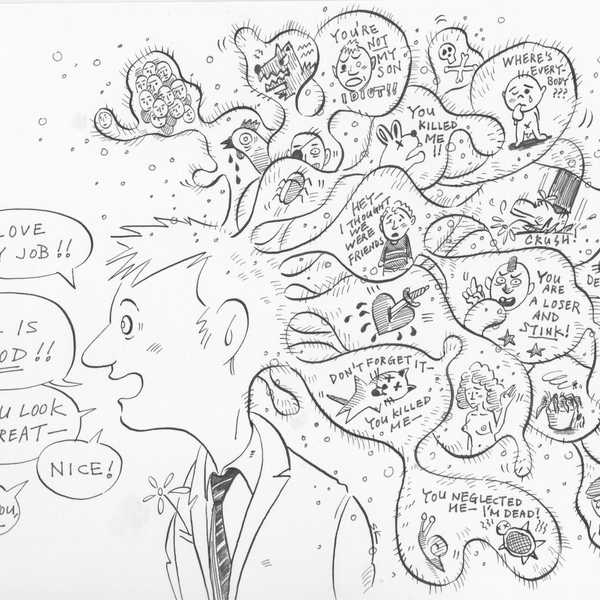 LOVE
Y JOB!!
L IS
OD!!
U LOOK
REAT—
NICE!
YOU
YOU'RE
NOT
MY
SON
IDIOT!!
YOU
KILLED
ME
!!
WHERE'S
EVERY-
BODY
???
HEY
I THOUGHT
WE
WERE
FRIENDS
CRUSH!
DE
YOU
ARE
A LOSER
AND
STINK!
DON'T FORGET IT—
YOU KILLED
ME—
YOU NEGLECTED
ME— I'M DEAD!